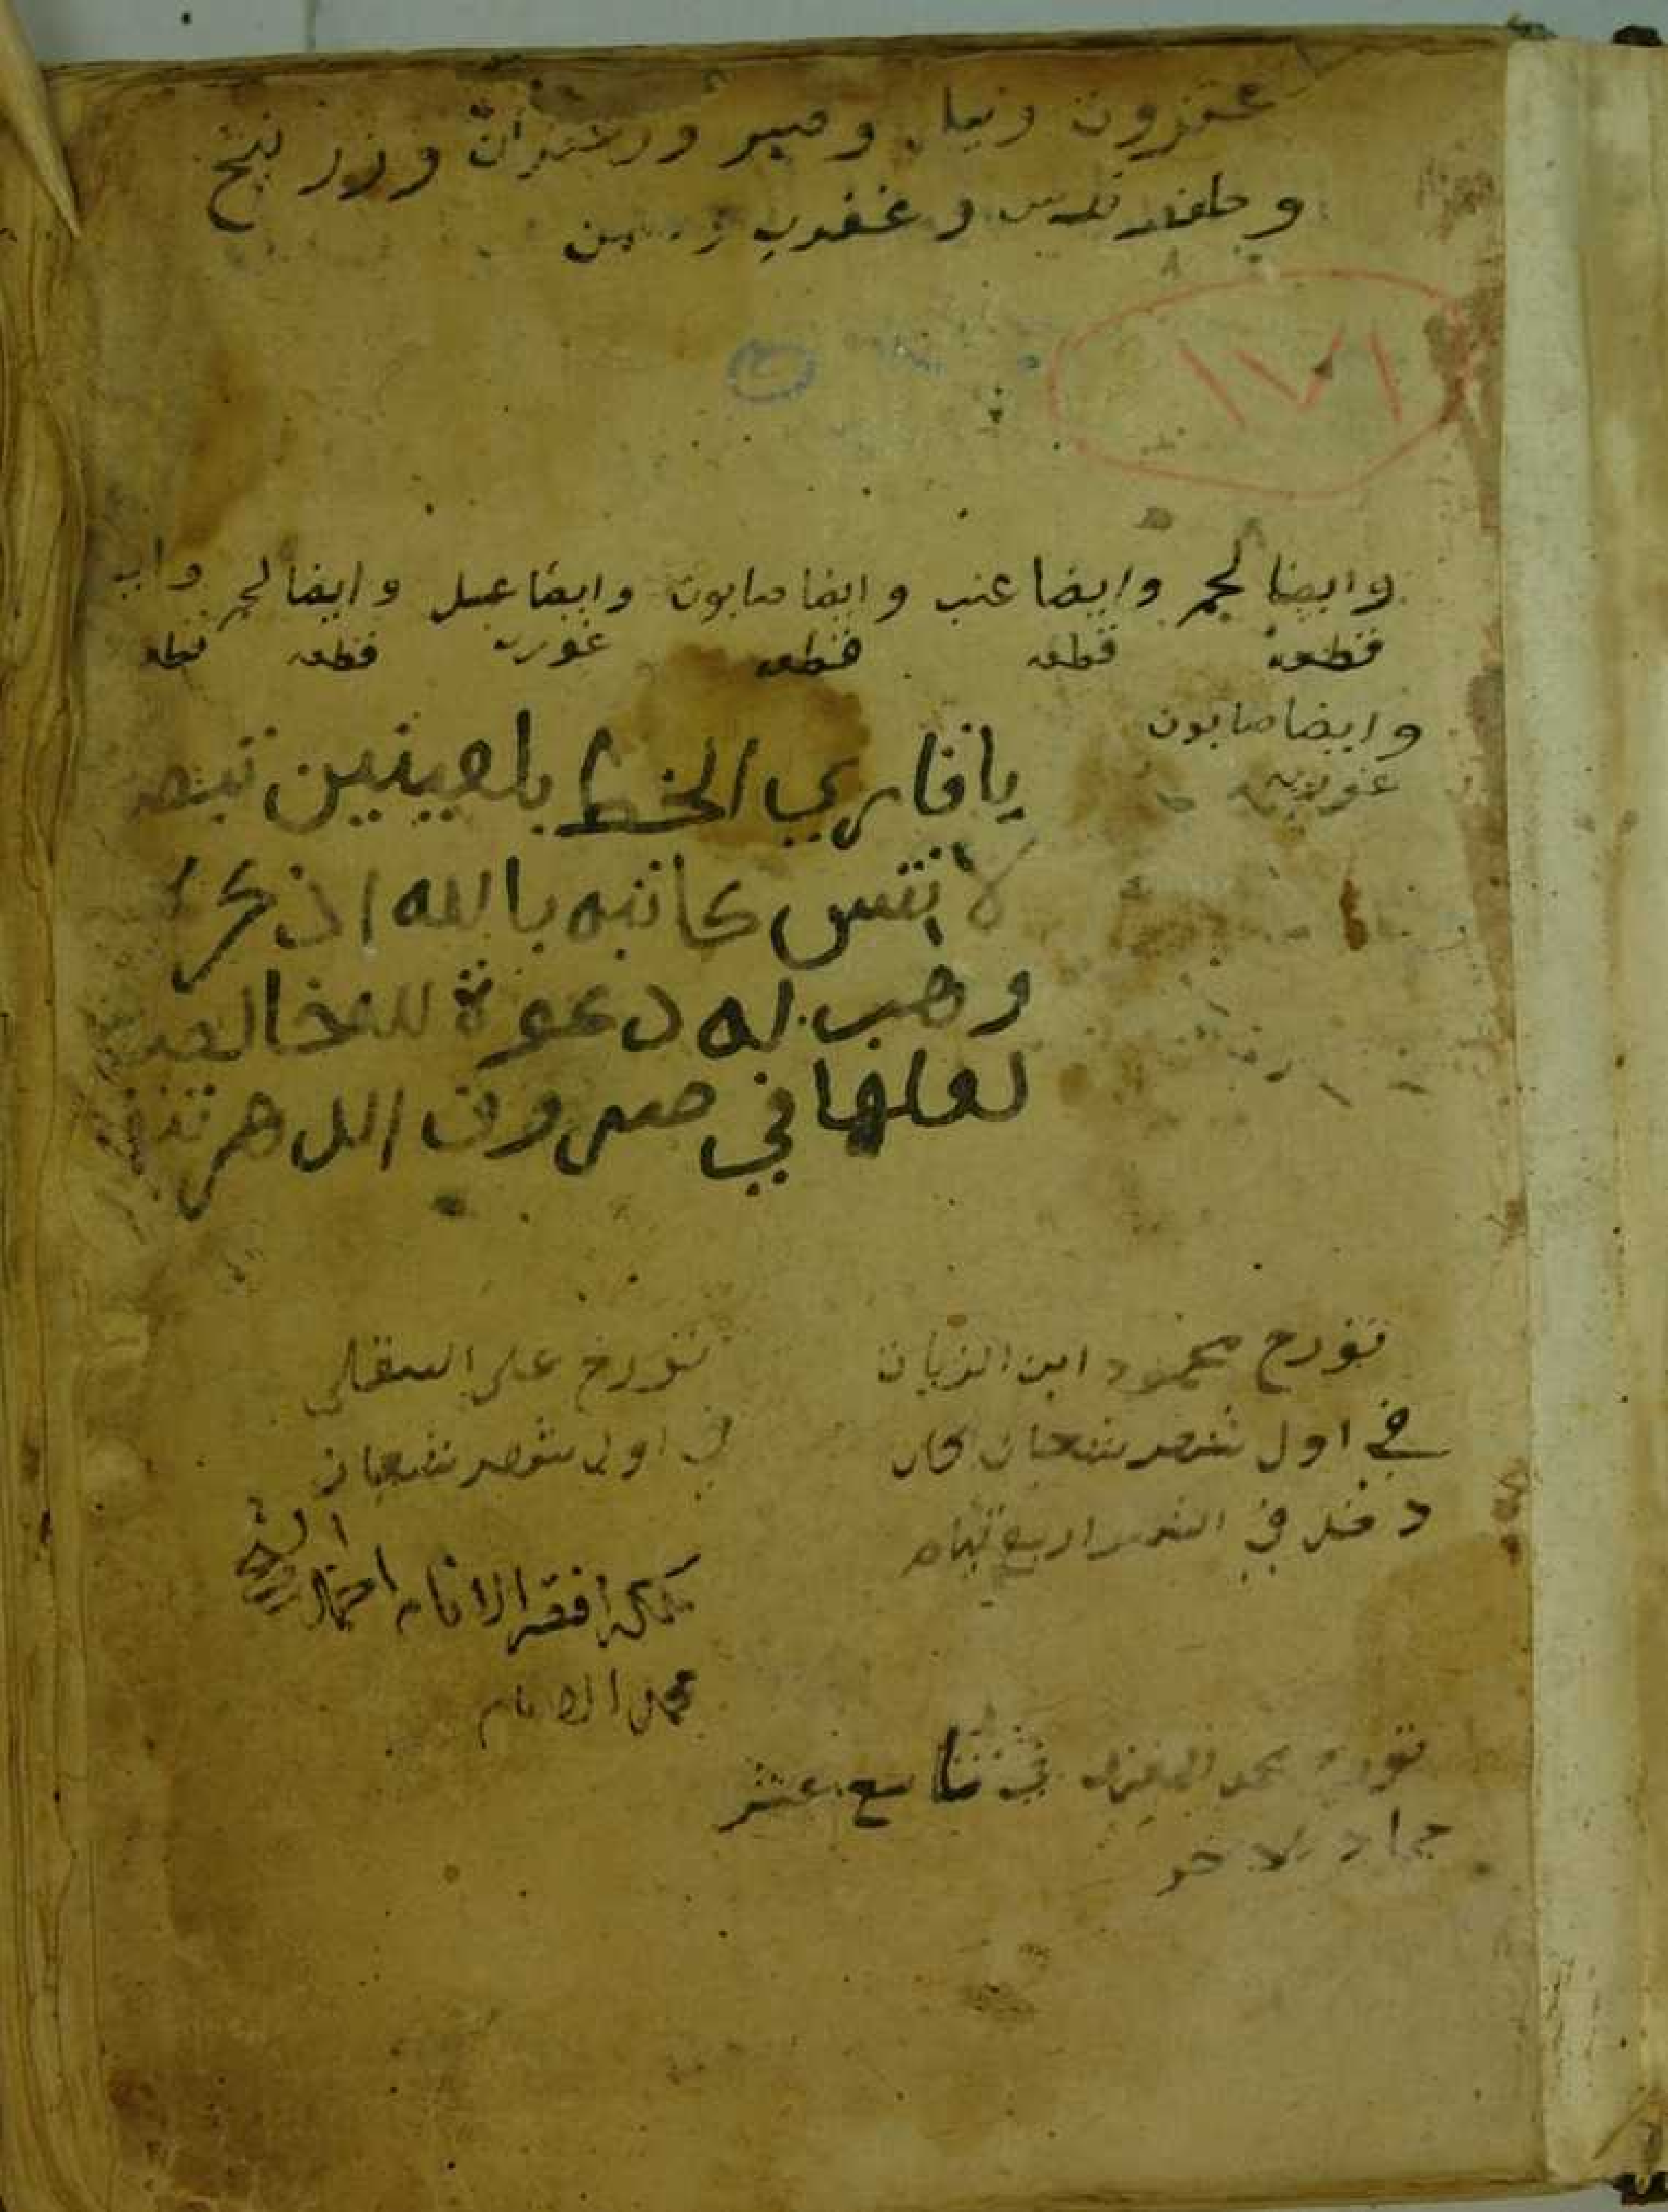 عنزروت ونيل وصبر وزعفران وزرنيخ
١٧١
وايضا لحم وايضا عنب وايضا صابون وايضا عسل وايضا لحم واي
قطعه قطعه قطعه غوريه قطعه قطعه
وايضا صابون
غوريه
يا قاري الخط بلعينين تبصر
لا تنس كاتبه بالله اذكر
وهب له دعوة لله خالصة
لعلها في صروف الدهر تنفع
تورخ محمود ابن الزيات
في اول شهر شعبان كان
دخل في الشهر اربع تيام
تورخ على البقلي
في اول شهر شعبان
ملكه افقر الانام احمد
محمد الامام
تورخ محمد في تاسع عشر
جماد الاخر